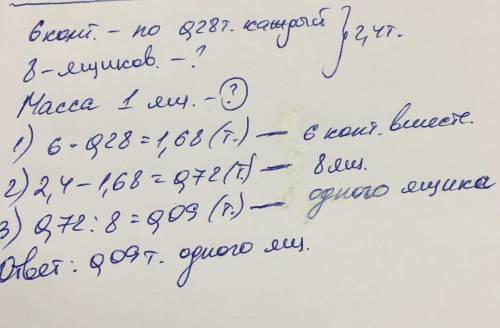 6 конт. – по 0,28т. каждый } 2,4т.
8 – ящиков. – ?
Масса 1 ящ. – ?
1) 6 · 0,28 = 1,68 (т.) — 6 конт. вместе.
2) 2,4 – 1,68 = 0,72 (т) — 8 ящ.
3) 0,72 : 8 = 0,09 (т.) — одного ящика
Ответ: 0,09т. одного ящ.